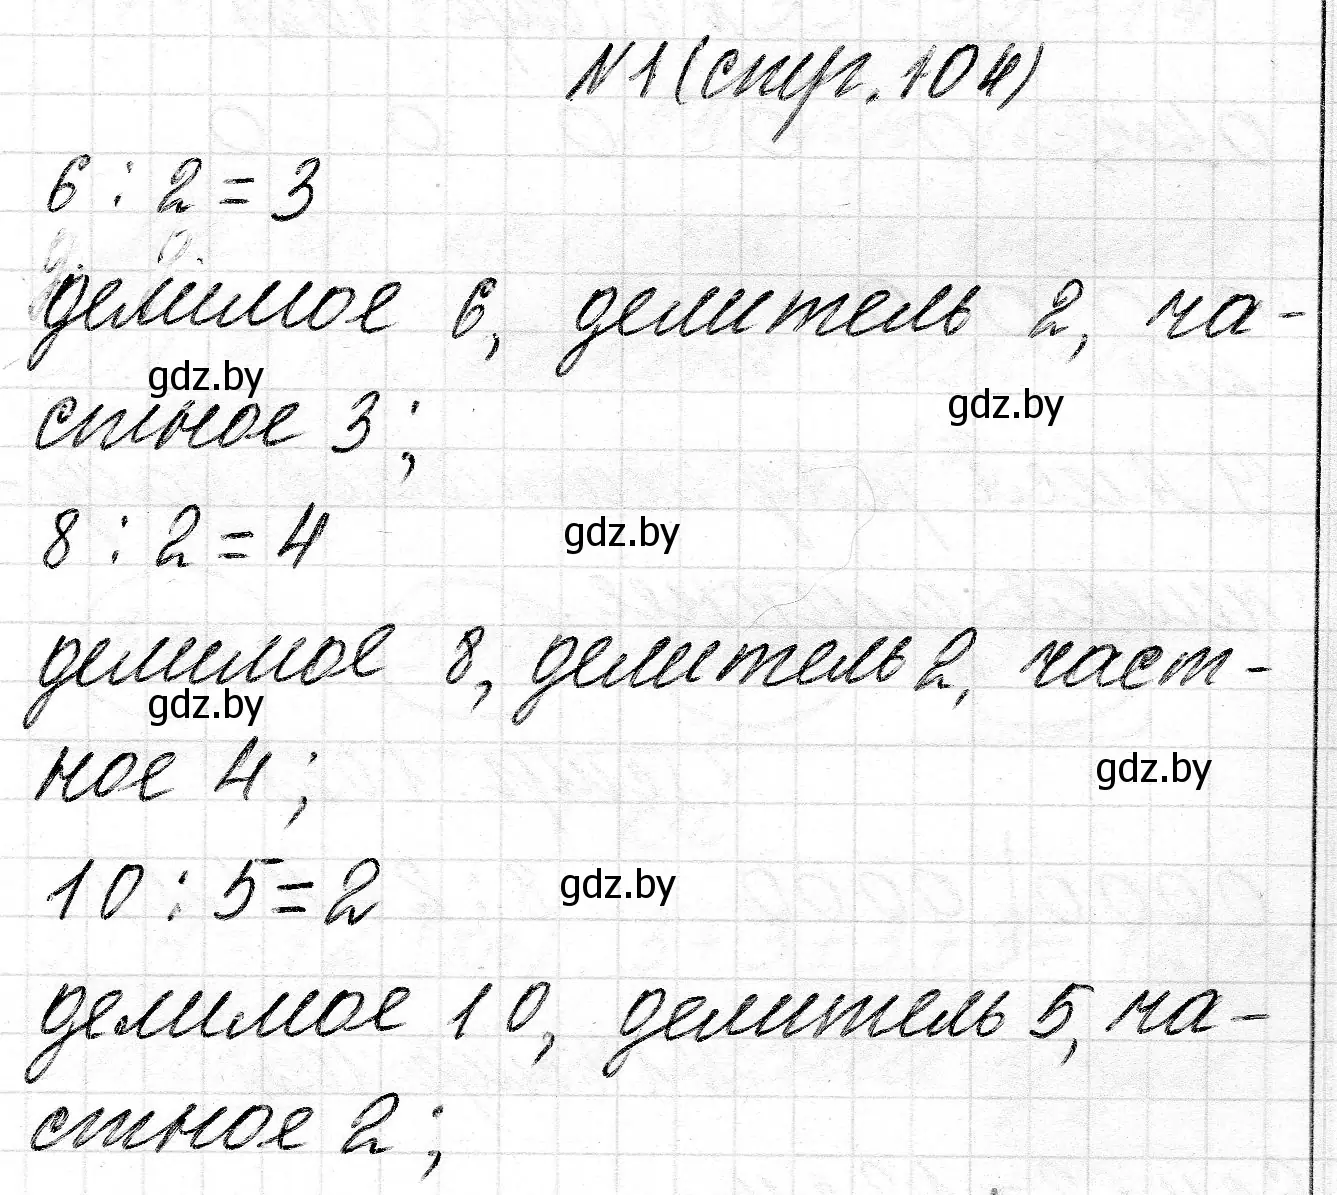 N1 (стр. 104)
6 : 2 = 3
делимое 6, делитель 2, ча-
gdz.by
gdz.by
стное 3;
8 : 2 = 4
gdz.by
делимое 8, делитель 2, част-
gdz.by
ное 4;
gdz.by
10 : 5 = 2
gdz.by
делимое 10, делитель 5, ча-
стное 2;